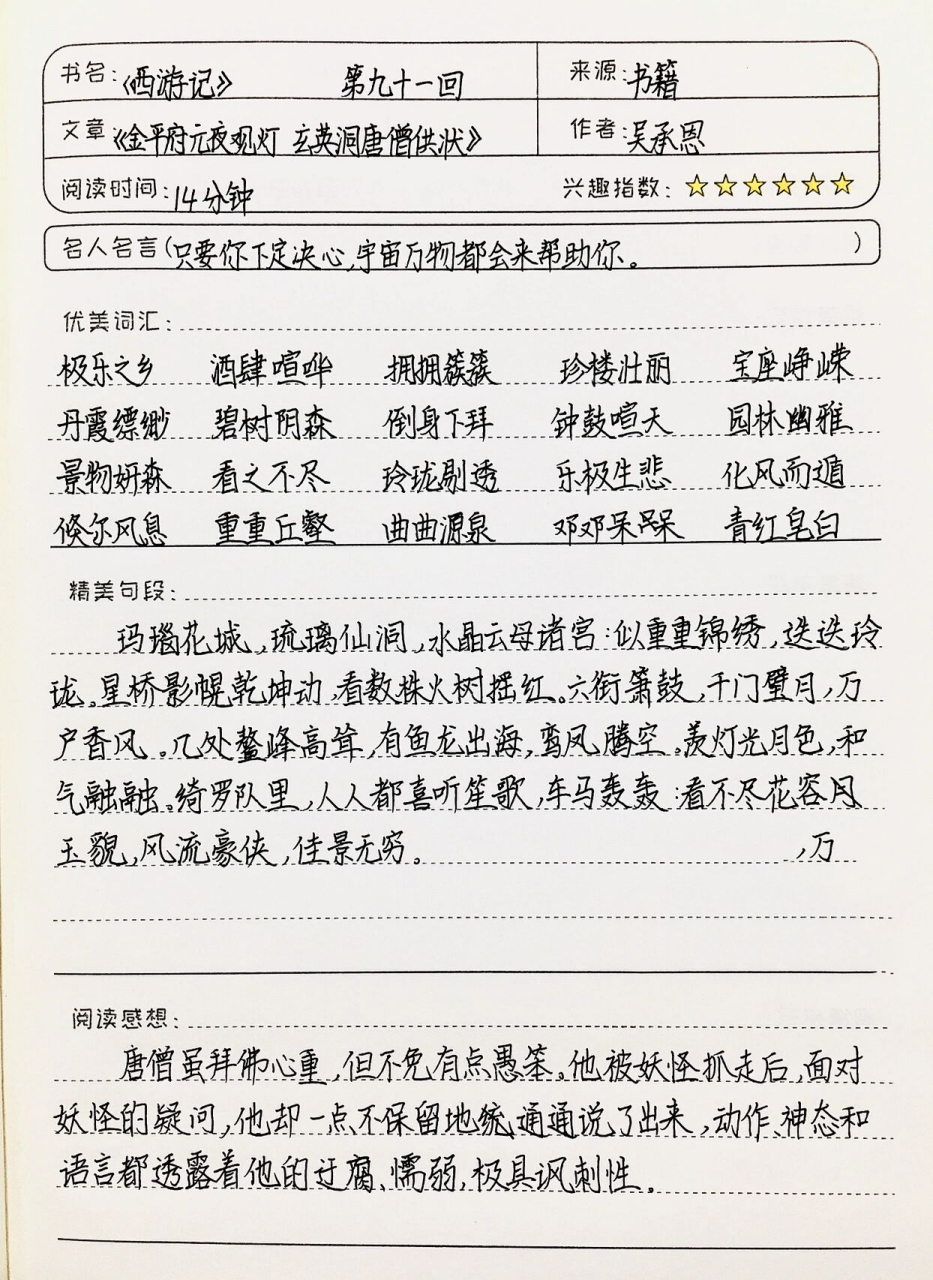 书名：《西游记》 第九十一回 来源：书籍
文章《金平府元夜观灯 玄英洞唐僧供状》 作者：吴承恩
阅读时间：14分钟 兴趣指数：☆☆☆☆☆☆
名人名言（只要你下定决心，宇宙万物都会来帮助你。）
优美词汇：
极乐之乡 酒肆喧哗 拥拥簇簇 珍楼壮丽 宝座峥嵘
丹霞缥缈 碧树阴森 倒身下拜 钟鼓喧天 园林幽雅
景物妍森 看之不尽 玲珑剔透 乐极生悲 化风而遁
倏尔风息 重重丘壑 曲曲源泉 邓邓呆呆 青红皂白
精美句段：
玛瑙花城，琉璃仙洞，水晶云母诸宫：似重重锦绣，迭迭玲
珑。星桥影幌乾坤动，看数株火树摇红。六街箫鼓，千门璧月，万
户香风。几处鳌峰高耸，有鱼龙出海，鸾凤腾空。羡灯光月色，和
气融融。绮罗队里，人人都喜听笙歌，车马轰轰：看不尽花容月
玉貌，风流豪侠，佳景无穷。 ，万
阅读感想：
唐僧虽拜佛心重，但不免有点愚笨。他被妖怪抓走后，面对
妖怪的疑问，他却一点不保留地统统通通说了出来，动作、神态和
语言都透露着他的迂腐、懦弱，极具讽刺性。